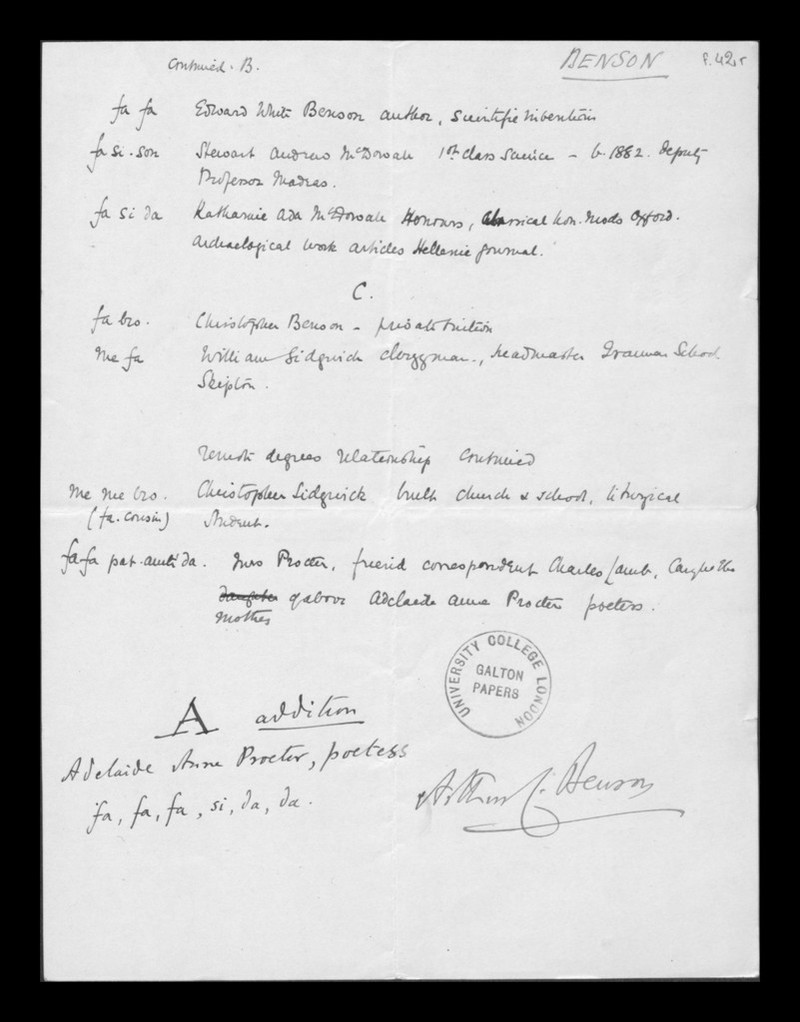 Continued. B.
BENSON
f. 42r
fa fa Edward White Benson author, scientific inventions
fa si. son Stewart Andrew McDowall 1st class Science - b. 1882. deputy
Professor Madras.
fa si da Katharine Ada McDowall Honours, Classical Hon. Mods Oxford.
Archaeological work articles Hellenic Journal.
C.
fa bro. Christopher Benson - private tuition
me fa William Sidgwick clergyman., headmaster Grammar School
Skipton.
remote degrees relationship continued
me me bro. Christopher Sidgwick built church & school, liturgical
(fa. cousin) student.
fa-fa pat-aunt's da. Mrs Procter, friend correspondent Charles Lamb,
daughter of above Adelaide Anne Procter poetess.
mother
UNIVERSITY COLLEGE LONDON
GALTON
PAPERS
A addition
Adelaide Anne Procter, poetess
fa, fa, fa, si, da, da.
Arthur C. Benson